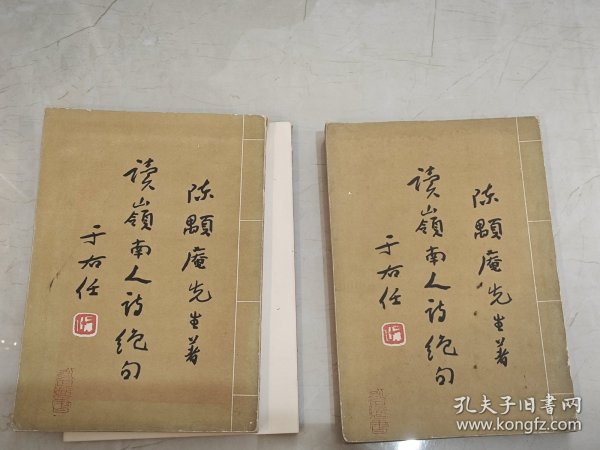 陈颙庵先生著
读嶺南人詩绝句
于右任
陈颙庵先生著
读嶺南人詩绝句
于右任
孔夫子旧书网
www.kongfz.com